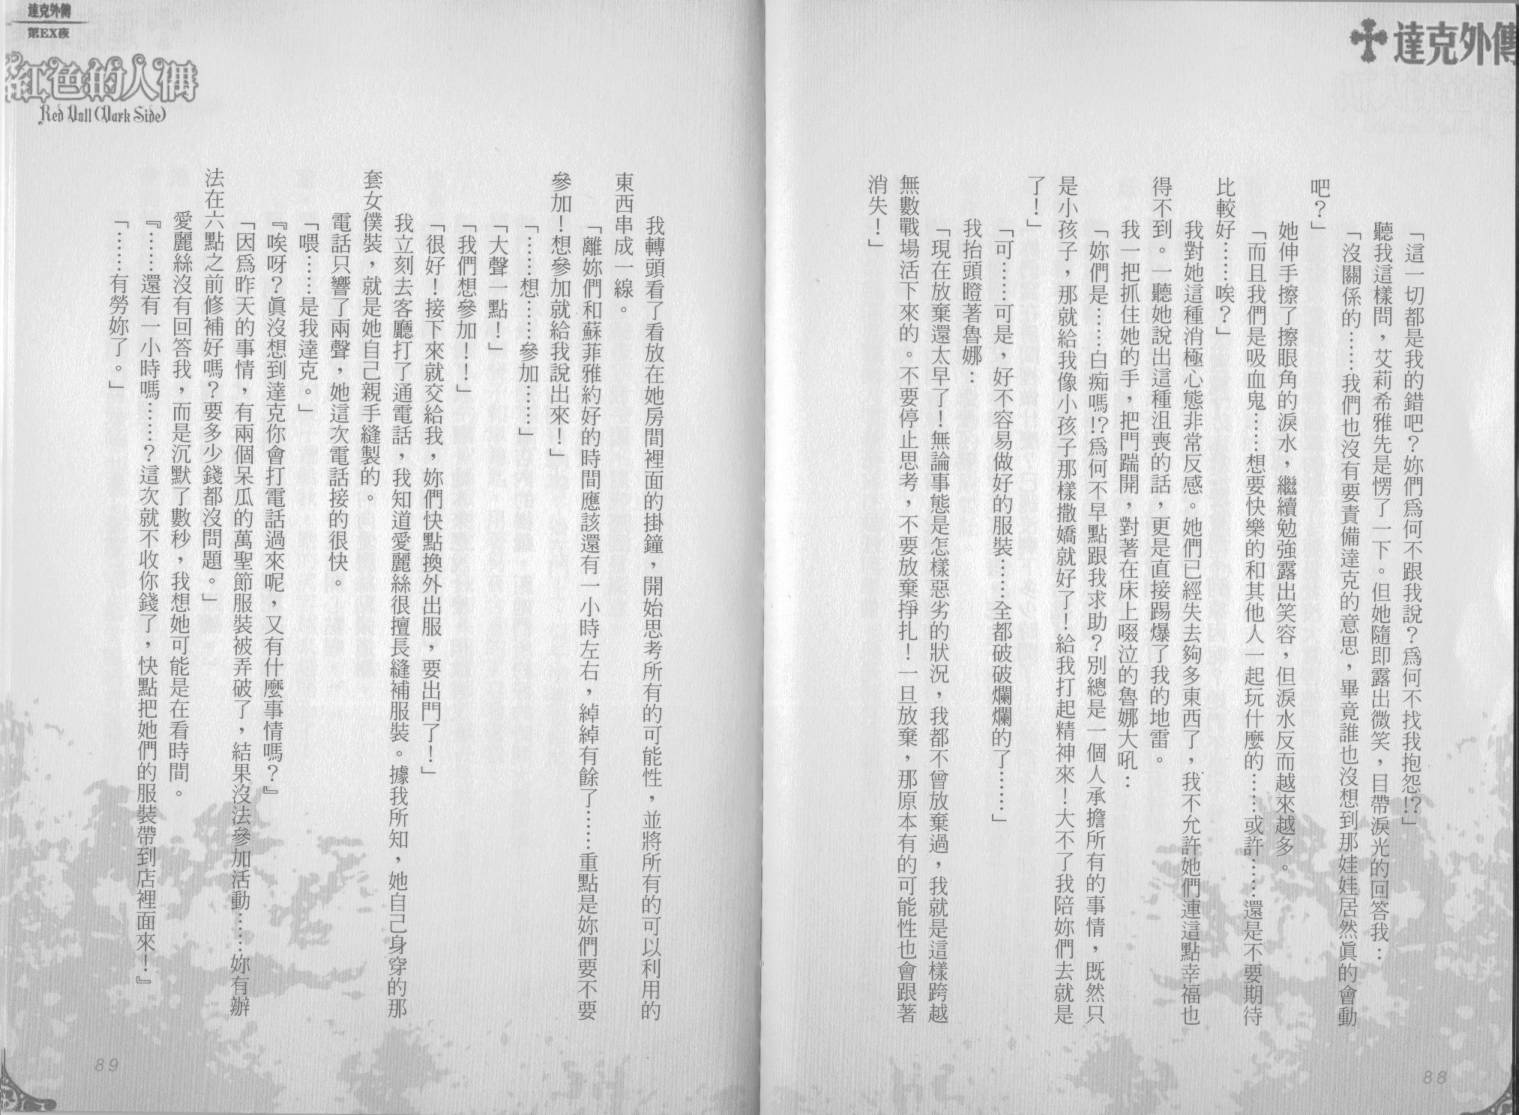 達克外傳
「這一切都是我的錯吧？妳們為何不跟我說？為何不找我抱怨!?」
聽我這樣問，艾莉希雅先是愣了一下。但她隨即露出微笑，目帶淚光的回答我：
「沒關係的……我們也沒有要責備達克的意思，畢竟誰也沒想到那娃娃居然真的會動
吧？」
她伸手擦了擦眼角的淚水，繼續勉強露出笑容，但淚水反而越來越多。
「而且我們是吸血鬼……想要快樂的和其他人一起玩什麼的……或許……還是不要期待
比較好……唉？」
我對她這種消極心態非常反感。她們已經失去夠多東西了，我不允許她們連這點幸福也
得不到。一聽她說出這種沮喪的話，更是直接踢爆了我的地雷。
我一把抓住她的手，把門踹開，對著在床上啜泣的魯娜大吼：
「妳們是……白痴嗎!?為何不早點跟我求助？別總是一個人承擔所有的事情，既然只
是小孩子，那就給我像小孩子那樣撒嬌就好了！給我打起精神來！大不了我陪妳們去就是
了！」
「可……可是，好不容易做好的服裝……全都破破爛爛的了……」
我抬頭瞪著魯娜：
「現在放棄還太早了！無論事態是怎樣惡劣的狀況，我都不曾放棄過，我就是這樣跨越
無數戰場活下來的。不要停止思考，不要放棄掙扎！一旦放棄，那原本有的可能性也會跟著
消失！」
88
達克外傳
第EX夜
紅色的人偶
Red Doll(Dark Side)
我轉頭看了看放在她房間裡面的掛鐘，開始思考所有的可能性，並將所有的可以利用的
東西串成一線。
「離妳們和蘇菲雅約好的時間應該還有一小時左右，綽綽有餘了……重點是妳們要不要
參加！想參加就給我說出來！」
「……想……參加……」
「大聲一點！」
「我們想參加！！」
「很好！接下來就交給我，妳們快點換外出服，要出門了！」
我立刻去客廳打了通電話，我知道愛麗絲很擅長縫補服裝。據我所知，她自己身穿的那
套女僕裝，就是她自己親手縫製的。
電話只響了兩聲，她這次電話接的很快。
「喂……是我達克。」
『唉呀？真沒想到達克你會打電話過來呢，又有什麼事情嗎？』
「因為昨天的事情，有兩個呆瓜的萬聖節服裝被弄破了，結果沒法參加活動……妳有辦
法在六點之前修補好嗎？要多少錢都沒問題。」
愛麗絲沒有回答我，而是沉默了數秒，我想她可能是在看時間。
『……還有一小時嗎……？這次就不收你錢了，快點把她們的服裝帶到店裡面來！』
「……有勞妳了。」
89